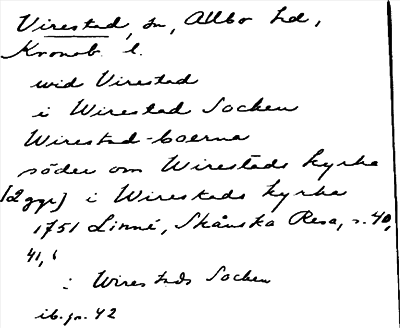 Virestad, sn, Allbo hd,
Kronob. l.
wid Virestad
i Wirestad Socken
Wirestad-boerna
söder om Wirestads kyrka
[2 ggr] i Wirestads kyrka
1751 Linné, Skånska Resa, s. 40,
41, 6
i Wirestads Socken
ib. s. 42